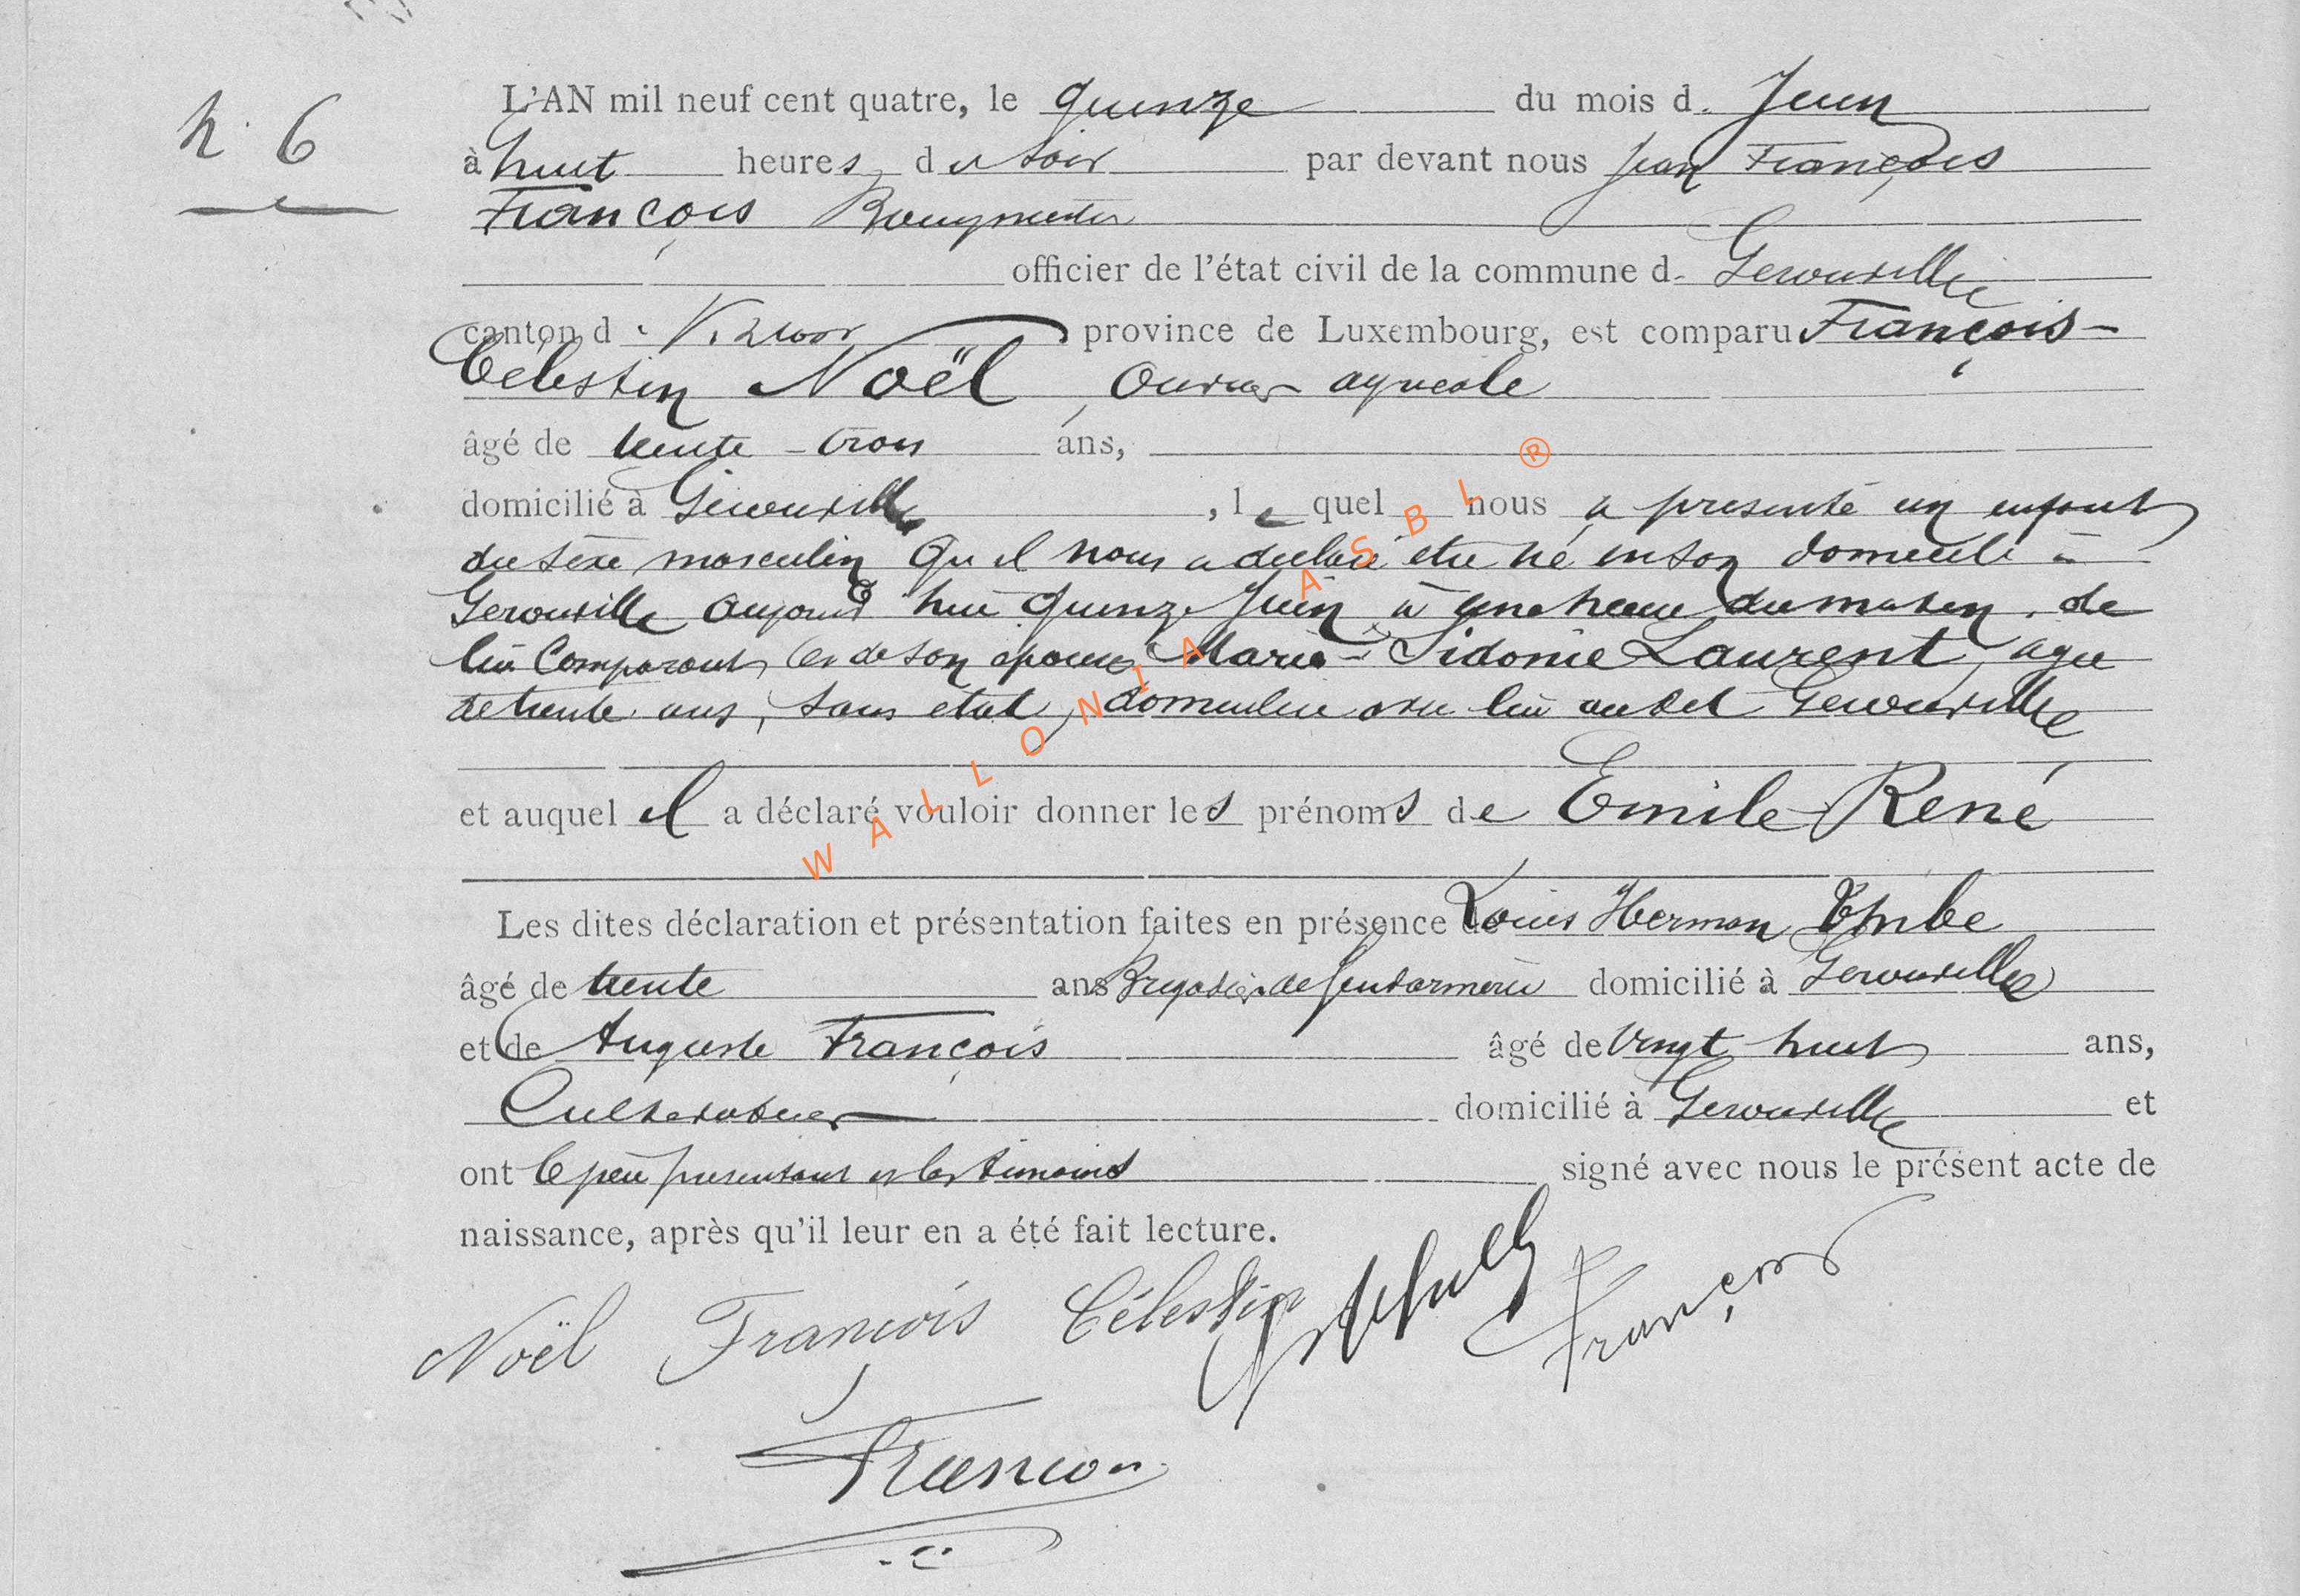 n. 6
L'AN mil neuf cent quatre, le quinze du mois d. Juin
à huit heures du soir par devant nous Jean François
François Bourgmestre
officier de l'état civil de la commune d. Gerouville
canton d. Virton province de Luxembourg, est comparu François-
Célestin Noël, Ouvrier agricole
âgé de trente-trois ans,
domicilié à Gérouville, le quel nous a présenté un enfant
du sexe masculin Qu'il nous a déclaré être né en son domicile à
Gerouville aujourd'hui quinze Juin à une heure du matin, de
lui Comparant et de son épouse Marie-Sidonie Laurent, agée
de trente ans, sans état, domiciliée avec lui audit Gerouville
et auquel il a déclaré vouloir donner les prénoms de Emile René
Les dites déclaration et présentation faites en présence de Louis Herman
âgé de trente ans Brigadier de Gendarmerie domicilié à Gerouville
et de Auguste François âgé de vingt huit ans,
Cultivateur domicilié à Gerouville et
ont le père présentant et les témoins signé avec nous le présent acte de
naissance, après qu'il leur en a été fait lecture.
Noël François Célestin
François
François
WALLONIA ASBL ®